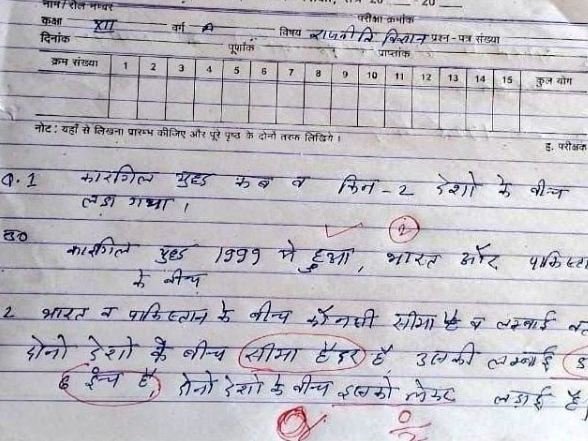 नाम/रोल नम्बर
20 20
कक्षा XII वर्ग A परीक्षा क्रमांक
दिनांक विषय राजनीति विज्ञान प्रश्न-पत्र संख्या
पूर्णांक प्राप्तांक
क्रम संख्या 1 2 3 4 5 6 7 8 9 10 11 12 13 14 15 कुल योग
नोट: यहाँ से लिखना प्रारम्भ कीजिए और पूरे पृष्ठ के दोनो तरफ लिखिये।
ह. परीक्षक
Q.1 कारगिल युद्ध कब व किन-2 देशो के बीच
लडा गया।
2
उ० कारगिल युद्ध 1999 मे हुआ, भारत और
के बीच
2 भारत व पाकिस्तान के बीच कौनसी सीमा है व लम्बाई
दोनो देशो के बीच सीमा हैदर है उसकी लम्बाई 5
6 इंच है, दोनो देशो के बीच इसको लेकर लड़ाई है।
0